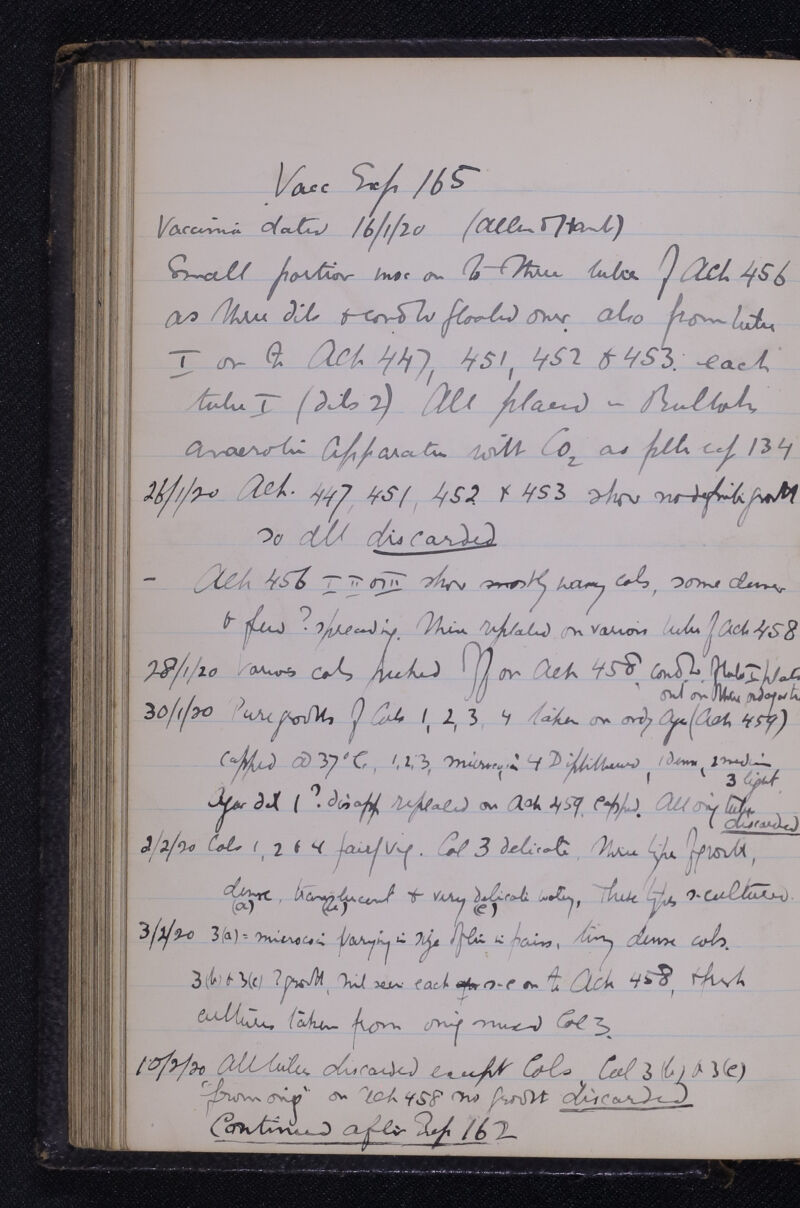 Vacc Exp 165
Vaccinia dated 16/1/20 (Allen & Hanb)
Small portion inoc on to three tubes of Ach 456
as three dils & cond w floated over, also from tube
I on to Ach 447, 451, 452 & 453. each
tube I (dils 2) All placed in Bullochs
anaerobic apparatus with CO2 as per exp 134
26/1/20 Ach. 447, 451, 452 & 453 show no definite growth
so all discarded
- Ach 456 I II & III show mostly many cols, some denser
& few ? spreading. These replated on various tubes of Ach 458
28/1/20 Various cols picked off on Ach 458, cond w of tube I plated
out on three
30/1/20 Pure growths of Cols 1, 2, 3, 4 taken on ordy Agar (Ach 459)
capped @ 37°C, 1, 2, 3, micrococci 4 Diphtheroid, 1 dense, 2 medium
3 light
Agar 1 ? replaced on Ach 459, capped. All orig tubes
discarded
2/2/20 Cols 1, 2 & 4 fair/vig. Col 3 delicate, three types growth,
dense, translucent & very delicate watery, These types s-cultured.
(a) (b) (c)
3/2/20 3(a) = micrococci varying in size often in pairs, tiny dense cols.
3(b) & 3(c) ? growth, nil seen each s-c on to Ach 458, & fresh
cultures taken from orig mixed Col 3.
10/2/20 All tubes discarded except Cols, Col 3(b) & 3(c)
"from orig" on Ach 458 no growth discarded
Continued after Exp 162